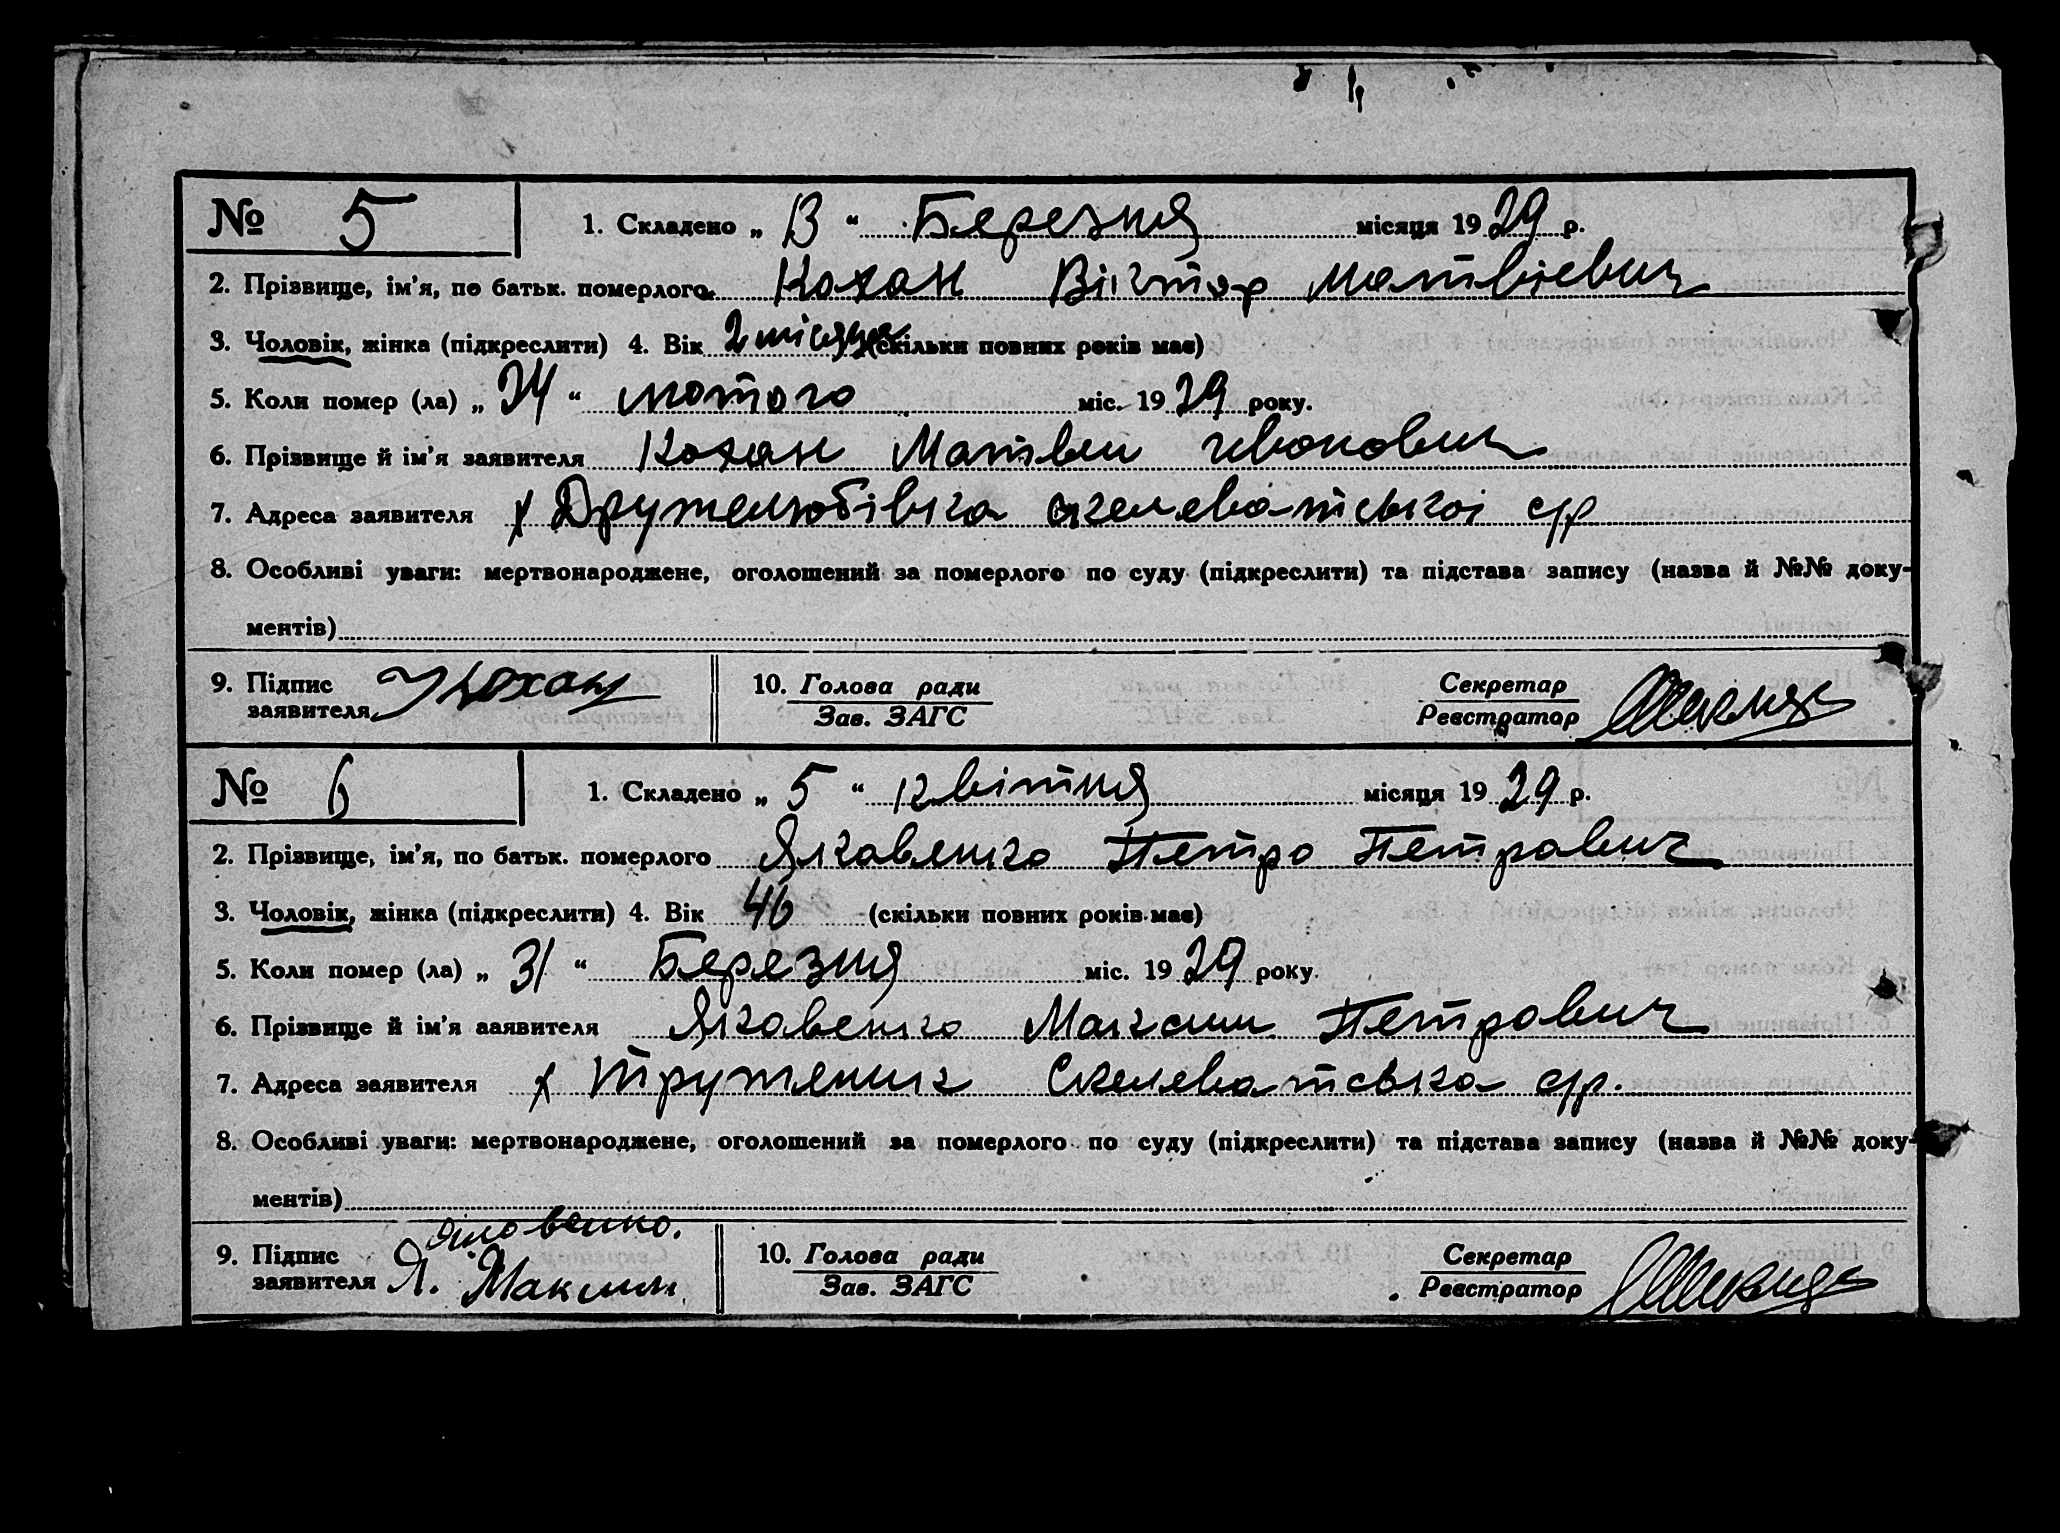 № 5 1. Складено „ 13 “ Березня місяця 1929 р.
2. Прізвище, ім'я, по батьк. померлого Кохан Віктор Матвієвич
3. Чоловік, жінка (підкреслити) 4. Вік 2 місяця (скільки повних років має)
5. Коли помер (ла) „ 24 “ лютого міс. 1929 року.
6. Прізвище й ім'я заявителя Кохан Матвеи
7. Адреса заявителя х Дружелюбівка скелеватської с/р
8. Особливі уваги: мертвонароджене, оголошений за померлого по суду (підкреслити) та підстава запису (назва й №№ доку-
ментів)
9. Підпис заявителя Кохан 10. Голова ради Зав. ЗАГС Секретар Реєстратор
№ 6 1. Складено „ 5 “ квітня місяця 1929 р.
2. Прізвище, ім'я, по батьк. померлого Яковенко Петро Петрович
3. Чоловік, жінка (підкреслити) 4. Вік 46 (скільки повних років має)
5. Коли помер (ла) „ 31 “ Березня міс. 1929 року.
6. Прізвище й ім'я заявителя Яковенко Максим Петрович
7. Адреса заявителя х Труженик Скелеватська с/р.
8. Особливі уваги: мертвонароджене, оголошений за померлого по суду (підкреслити) та підстава запису (назва й №№ доку-
ментів)
Яковенко.
9. Підпис заявителя Я. Максим 10. Голова ради Зав. ЗАГС Секретар Реєстратор